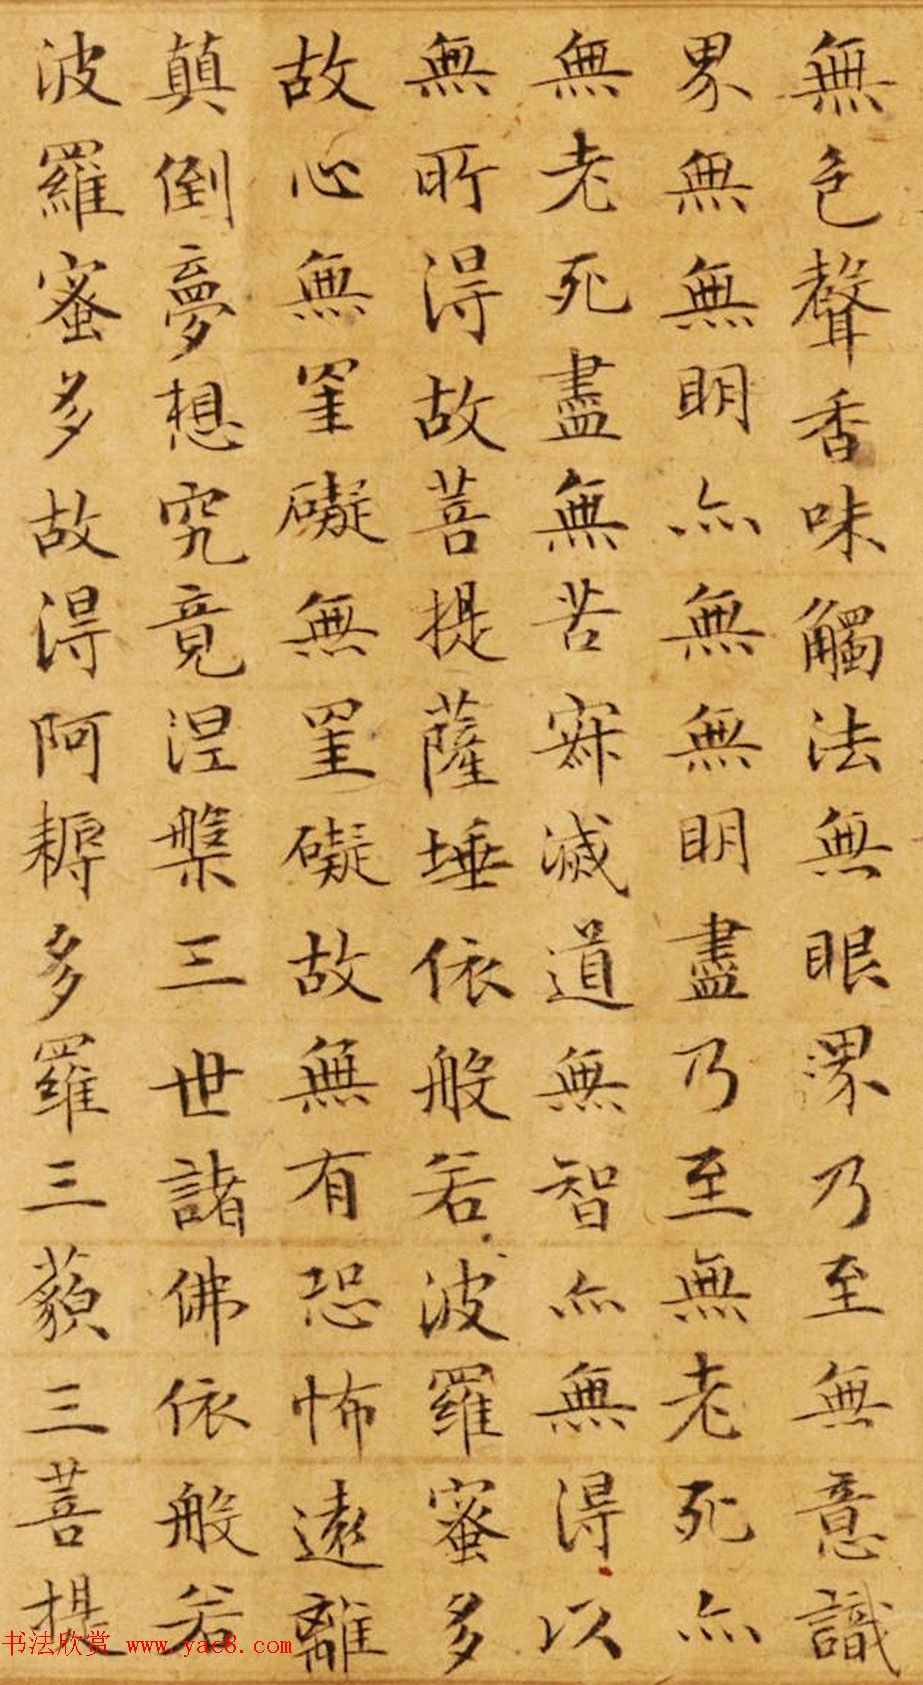 無色聲香味觸法無眼界乃至無意識
界無無明亦無無明盡乃至無老死亦
無老死盡無苦寂滅道無智亦無得以
無所得故菩提薩埵依般若波羅蜜多
故心無罣礙無罣礙故無有恐怖遠離
顛倒夢想究竟涅槃三世諸佛依般若
波羅蜜多故得阿耨多羅三藐三菩提
书法欣赏 www.yac8.com